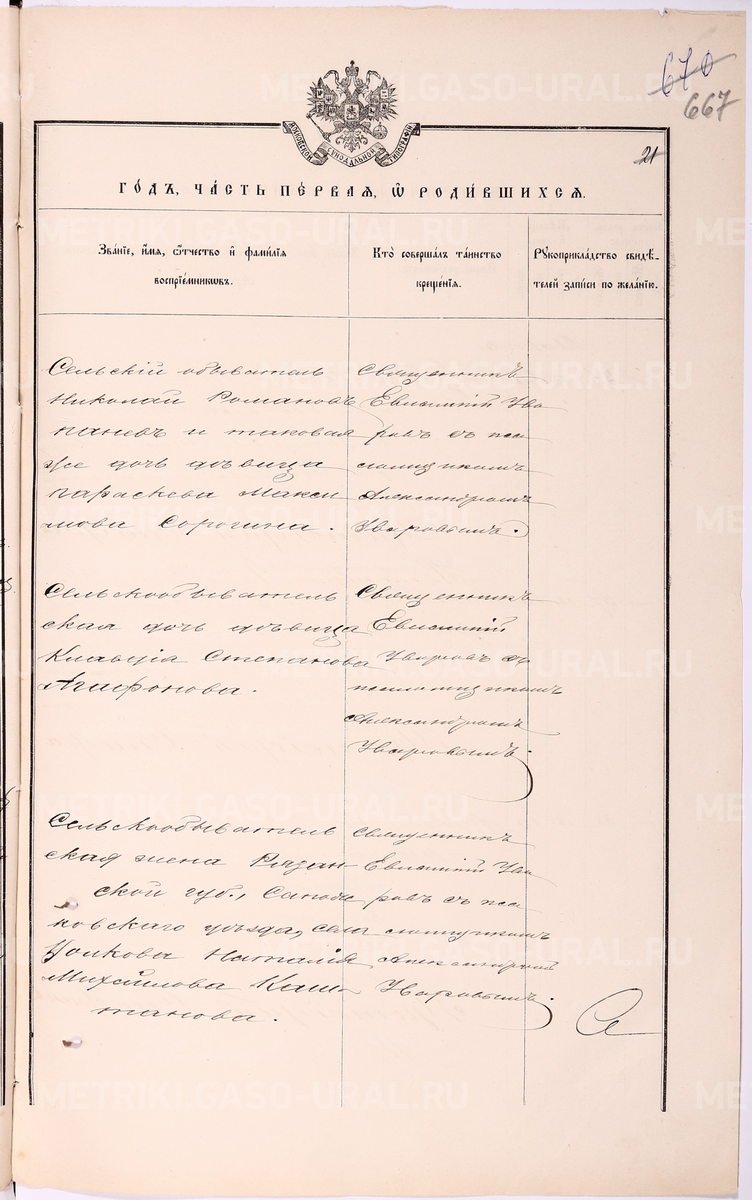 670
667
МОСКОВСКОЙ СѴНОДАЛЬНОЙ ТИПОГРАФІИ
21
ГО́ДЪ, ЧА́СТЬ ПЕ́РВАЯ, Ѡ РОДИ́ВШИХСЯ.
Зва́нїе, и҆́мя, ѻ҆́тчество и҆ фами́лїя
воспрїе́мникѡвъ.
Кто̀ соверша́лъ та́инство
креще́нїя.
Рꙋкоприкла́дство свидѣ́-
телей за́писи по жела́нїю.
Сельскій обыватель
Николай Романовъ
Паневъ и таковая
же дочь дѣвица
Параскева Макси
мова Сорогина.
Священникъ
Евѳимій Ува
ровъ съ пса
ломщикомъ
Александромъ
Уваровымъ.
Сельскообыватель
ская дочь дѣвица
Клавдія Степанова
Агафонова.
Священникъ
Евѳимій
Уваровъ съ
псаломщикомъ
Александромъ
Уваровымъ.
Сельскообыватель
ская жена Рязан
ской губ.,
ковскаго уѣзда, села
Наталія
Михайлова
танова.
Священникъ
Евѳимій Ува
ровъ съ пса
ломщикомъ
Александромъ
Уваровымъ.
METRIKI.GASO-URAL.RU